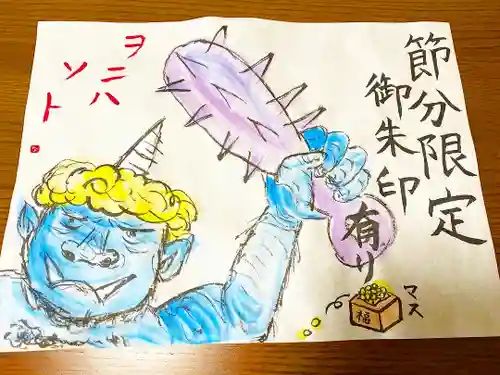 節分限定
御朱印
有り
ヲニハ
ソト
マス
福